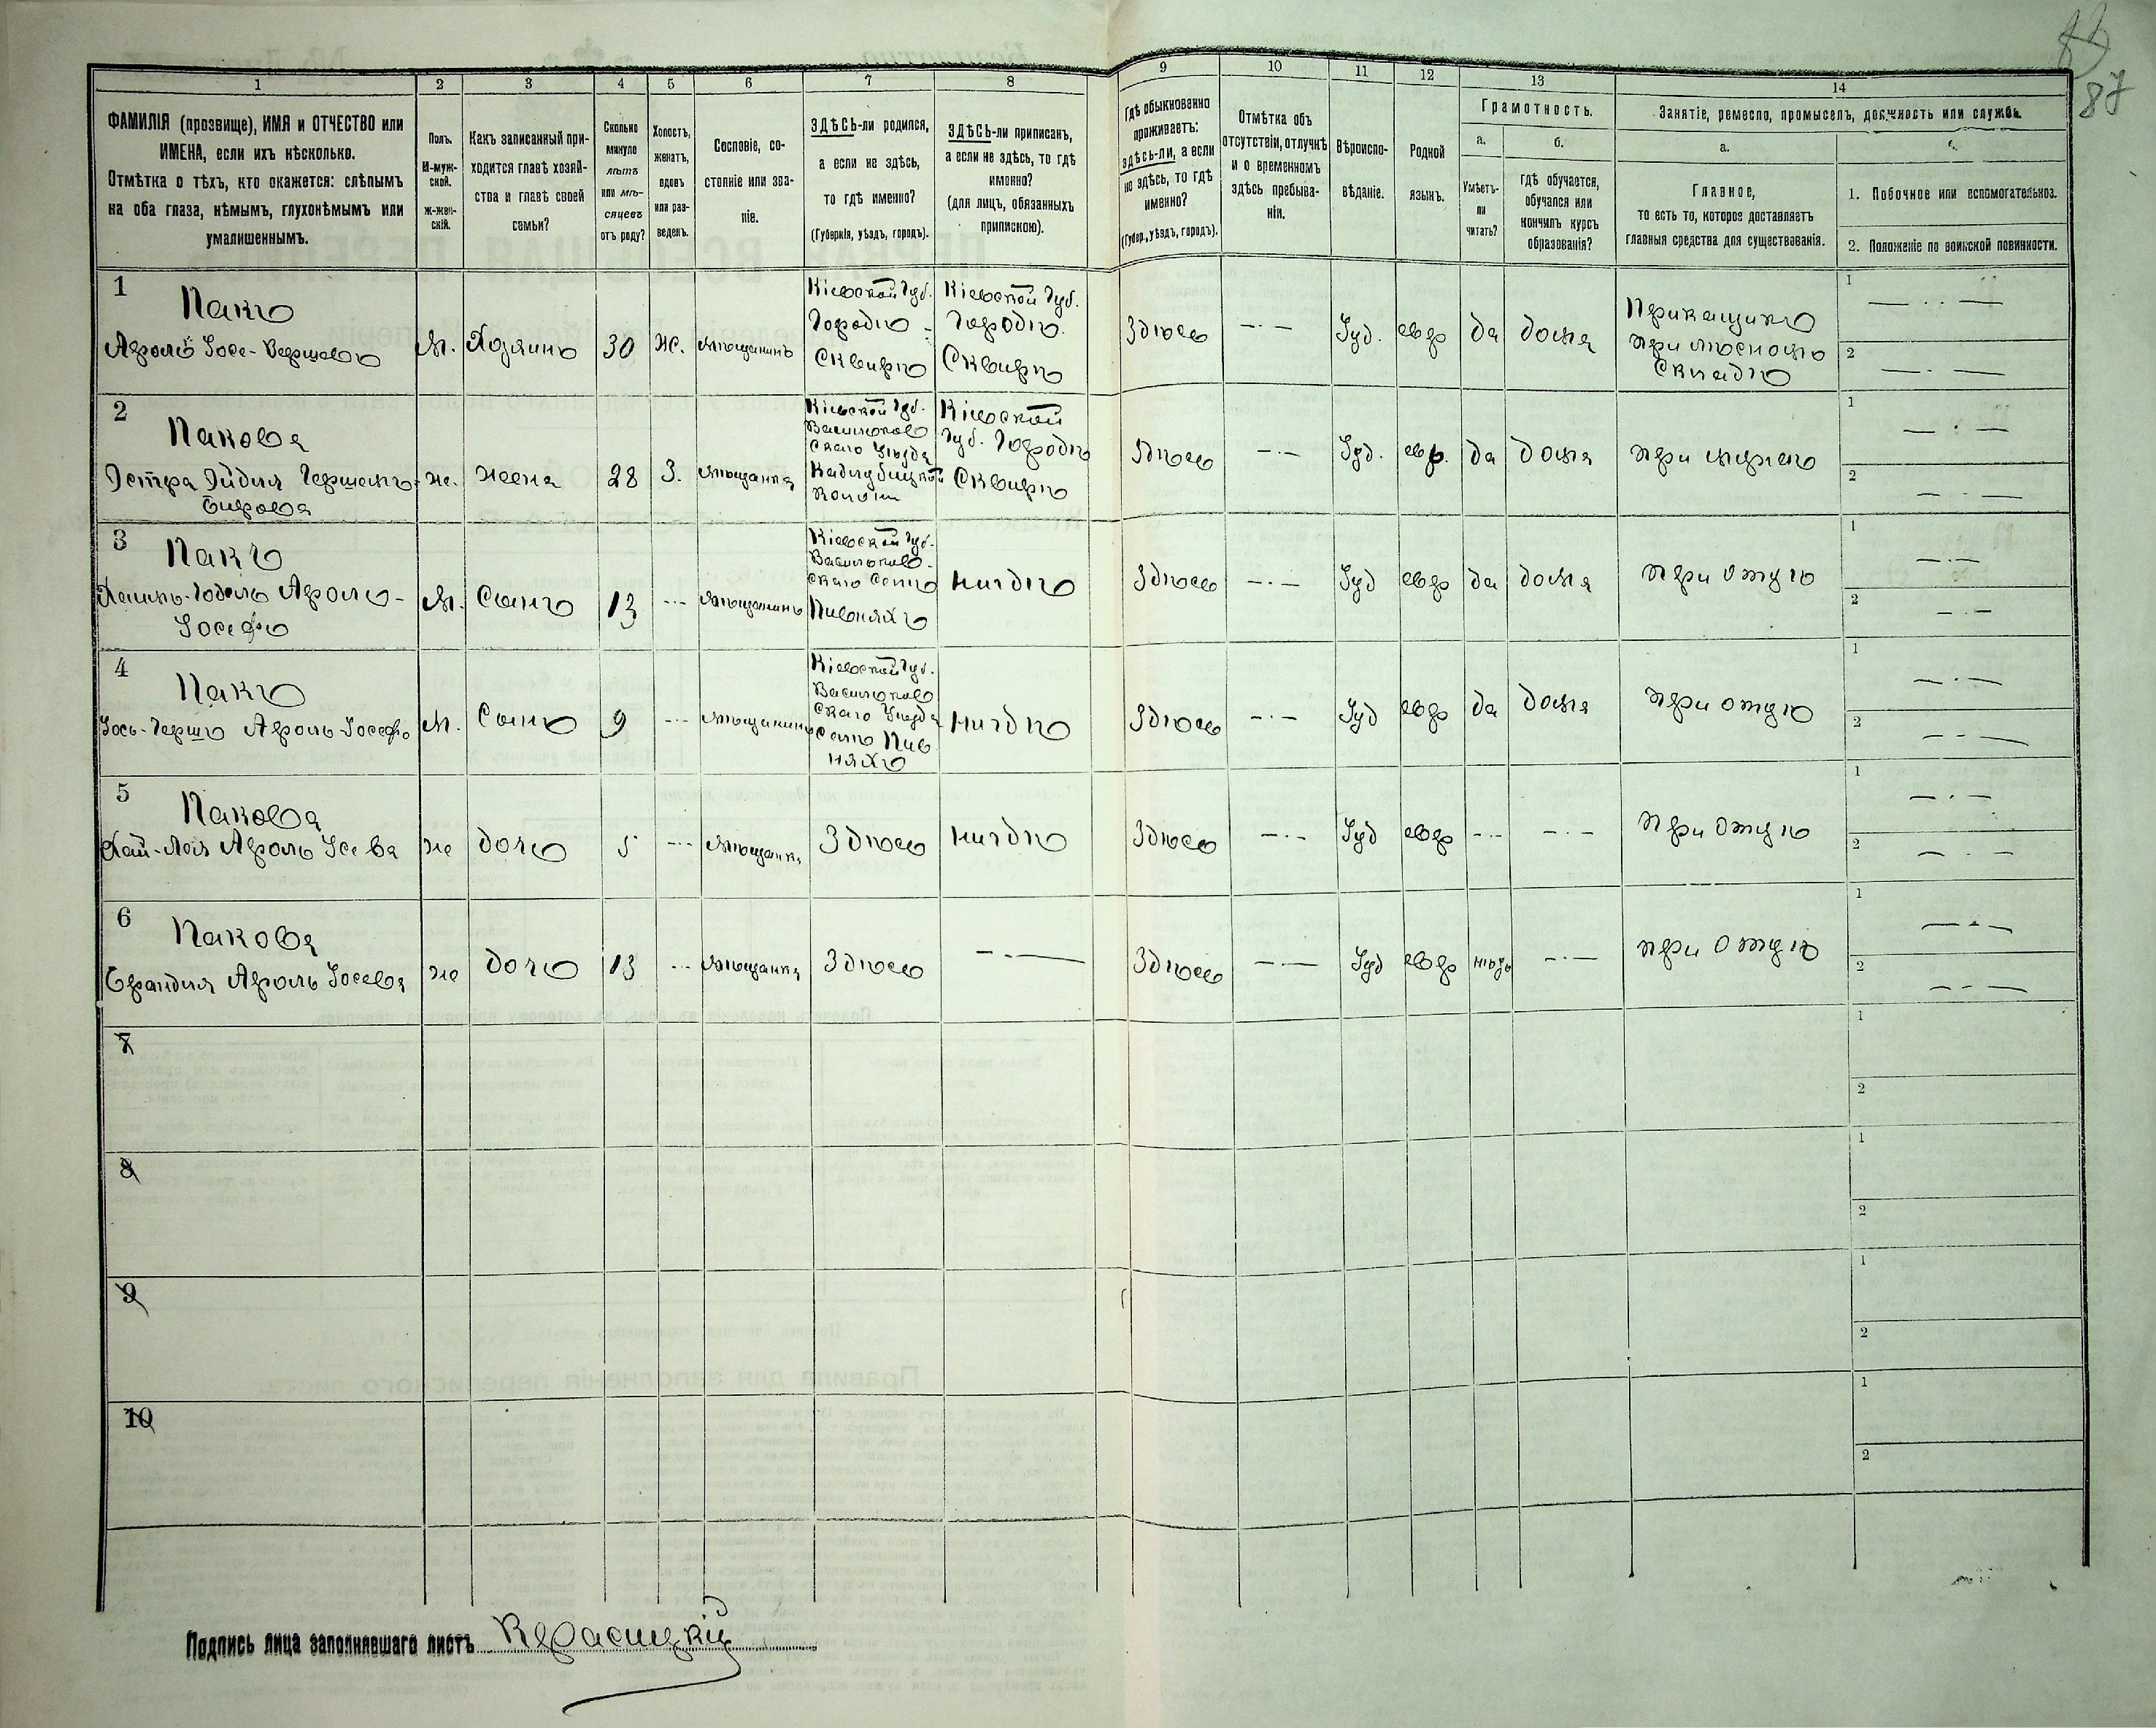 87
1 2 3 4 5 6 7 8 9 10 11 12 13 14
ФАМИЛІЯ (прозвище), ИМЯ и ОТЧЕСТВО или
ИМЕНА, если ихъ нѣсколько.
Отмѣтка о тѣхъ, кто окажется: слѣпымъ
на оба глаза, нѣмымъ, глухонѣмымъ или
умалишеннымъ.
Полъ.
М-муж-
ской.
Ж-жен-
скій.
Какъ записанный при-
ходится главѣ хозяй-
ства и главѣ своей
семьи?
Сколько
минуло
лѣтъ
или мѣ-
сяцевъ
отъ роду?
Холостъ,
женатъ,
вдовъ
или раз-
веденъ.
Сословіе, со-
стояніе или зва-
ніе.
ЗДѢСЬ-ли родился,
а если не здѣсь,
то гдѣ именно?
(Губернія, уѣздъ, городъ).
ЗДѢСЬ-ли приписанъ,
а если не здѣсь, то гдѣ
именно?
(для лицъ, обязанныхъ
припискою).
Гдѣ обыкновенно
проживаетъ:
здѣсь-ли, а если
не здѣсь, то гдѣ
именно?
(Губер., уѣздъ, городъ).
Отмѣтка объ
отсутствіи, отлучкѣ
и о временномъ
здѣсь пребыва-
ніи.
Вѣроиспо-
вѣданіе.
Родной
языкъ.
Грамотность.
а.
Умѣетъ-
ли
читать?
б.
гдѣ обучается,
обучался или
кончилъ курсъ
образованія?
Занятіе, ремесло, промыселъ, должность или служба.
а.
Главное,
то есть то, которое доставляетъ
главныя средства для существованія.
1. Побочное или вспомогательное.
2. Положеніе по воинской повинности.
1
Пакъ
М.
Хозяинъ
30
Ж.
мѣщанинъ
Кіевской Губ.
Городъ
Сквиръ
Кіевской Губ.
Городъ
Сквиръ
Здѣсь
— · —
Іуд.
евр
да
дома
Прикащикъ
при лѣсномъ
складѣ
1 — · · —
2 — · —
2
Пакова
Эстра Эйдля
ж.
жена
28
З.
мѣщанка
Кіевской Губ.
Васильков
скаго Уѣзда
Кіевской
Губ. Городъ
Сквиръ
Здѣсь
— · —
Іуд.
евр.
да
дома
при мужѣ
1 — · —
2 — · —
3
Пакъ
М.
Сынъ
13
- · -
мѣщанинъ
Кіевской Губ.
Васильков-
скаго
нигдѣ
Здѣсь
— · —
Іуд
евр
да
дома
при отцѣ
1 — · —
2 — · —
4
Пакъ
М.
Сынъ
9
- · -
мѣщанинъ
Кіевской Губ.
Васильков
скаго Уѣзда
село Пив
няхъ
нигдѣ
Здѣсь
— · —
Іуд
евр
да
дома
при отцѣ
1 — · —
2 — · —
5
Пакова
же
дочь
5
- · -
мѣщанка
Здѣсь
нигдѣ
Здѣсь
— · —
Іуд
евр
- · -
- · -
при отцѣ
1 — · —
2 — · —
6
Пакова
же
дочь
13
- · -
мѣщанка
Здѣсь
— · —
Здѣсь
— · —
Іуд
евр
нѣтъ
- · -
при отцѣ
1 — · —
2 — · —
7 1
2
8 1
2
9 1
2
10 1
2
Подпись лица заполнявшаго листъ